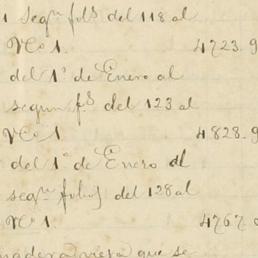 1 Segn fols del 118 al
No 1. 4723.9
del 1o de Enero al
segun fs del 123 al
No 1 4828.9
del 1o de Enero al
segn folios del 128 al
No 1 4767.
que se